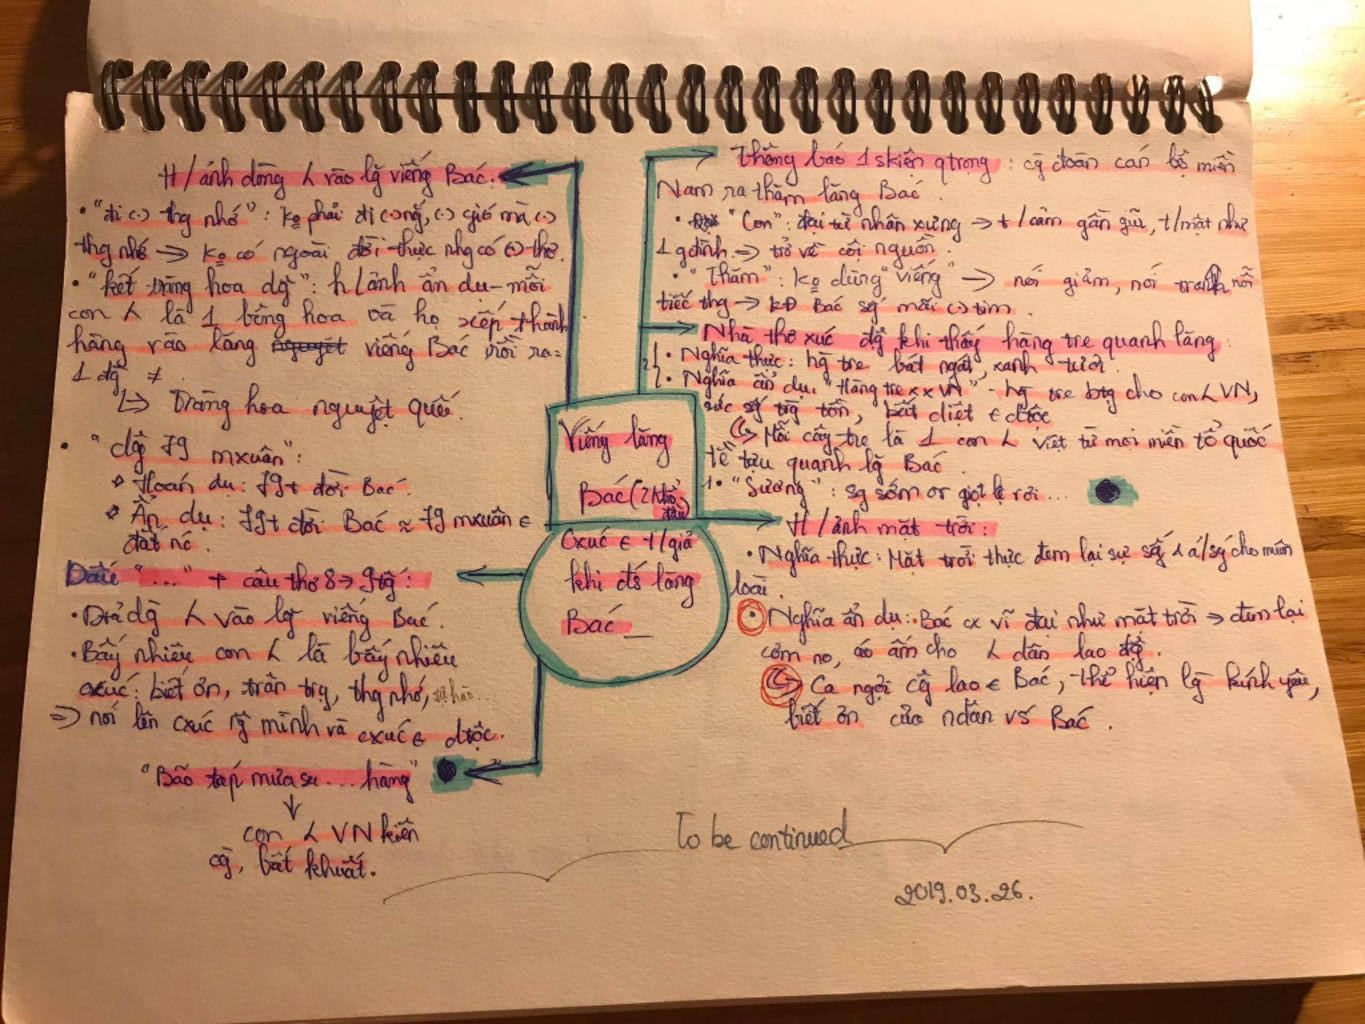 H/ảnh dòng ʎ vào lg viếng Bác:
• "đi (-) thg nhớ": ko phải đi (-) nắng, (-) gió mà (-)
thg nhớ → ko có ngoài đời thực nhg có (-) thơ.
• "kết tràng hoa dg": h/ảnh ẩn dụ - mỗi
con ʎ là 1 bông hoa và họ xếp thành
hàng vào lăng viếng Bác rồi ra =
1 dg ≠.
↳ Tràng hoa nguyệt quế.
• "dg 79 mxuân":
* Hoán dụ: 79t đời Bác.
* Ẩn dụ: 79t đời Bác ≈ 79 mxuân ∈
đất nc.
Dấu "...." + câu thơ 8 → 9 tg:
• D dg ʎ vào lg viếng Bác.
• Bấy nhiêu con ʎ là bấy nhiêu
cxúc: biết ơn, trân trg, thg nhớ, tự hào...
⇒ nói lên cxúc rg mình và cxúc ∈ dtộc.
"Bão táp mưa sa ... hàng"
↓
con ʎ VN kiên
cg, bất khuất.
Viếng lăng
Bác (2 khổ
đầu)
Cxúc ∈ t/giả
khi đ lăng
Bác
Thông báo 1 skiện qtrọng: cg đoàn cán bộ miền
Nam ra thăm lăng Bác
• "Con": đại từ nhân xưng → t/cảm gần gũi, t/mật như
1 gđình → trở về cội nguồn.
• "Thăm": ko dùng "viếng" → nói giảm, nói tránh nỗi
tiếc thg → kđ Bác sg mãi (-) tim.
Nhà thơ xúc đg khi thấy hàng tre quanh lăng:
1 • Nghĩa thực: hg tre bát ngát, xanh tươi.
2 • Nghĩa ẩn dụ "Hàng tre xx VN" - hg tre btg cho con ʎ VN,
sức sg trg tồn, bất diệt ∈ dtộc
↳ Mỗi cây tre là 1 con ʎ Việt từ mọi miền tổ quốc
tề tựu quanh lg Bác.
1 • "Sương": sg sớm or giọt lệ rơi ...
H/ảnh mặt trời:
• Nghĩa thực: Mặt trời thực đem lại sự sg, á/sg cho muôn
loài.
• Nghĩa ẩn dụ: Bác cx vĩ đại như mặt trời → đem lại
cơm no, áo ấm cho ʎ dân lao đg.
↳ Ca ngợi cg lao ∈ Bác, thể hiện lg kính yêu,
biết ơn của ndân vs Bác.
To be continued
2019.03.26.